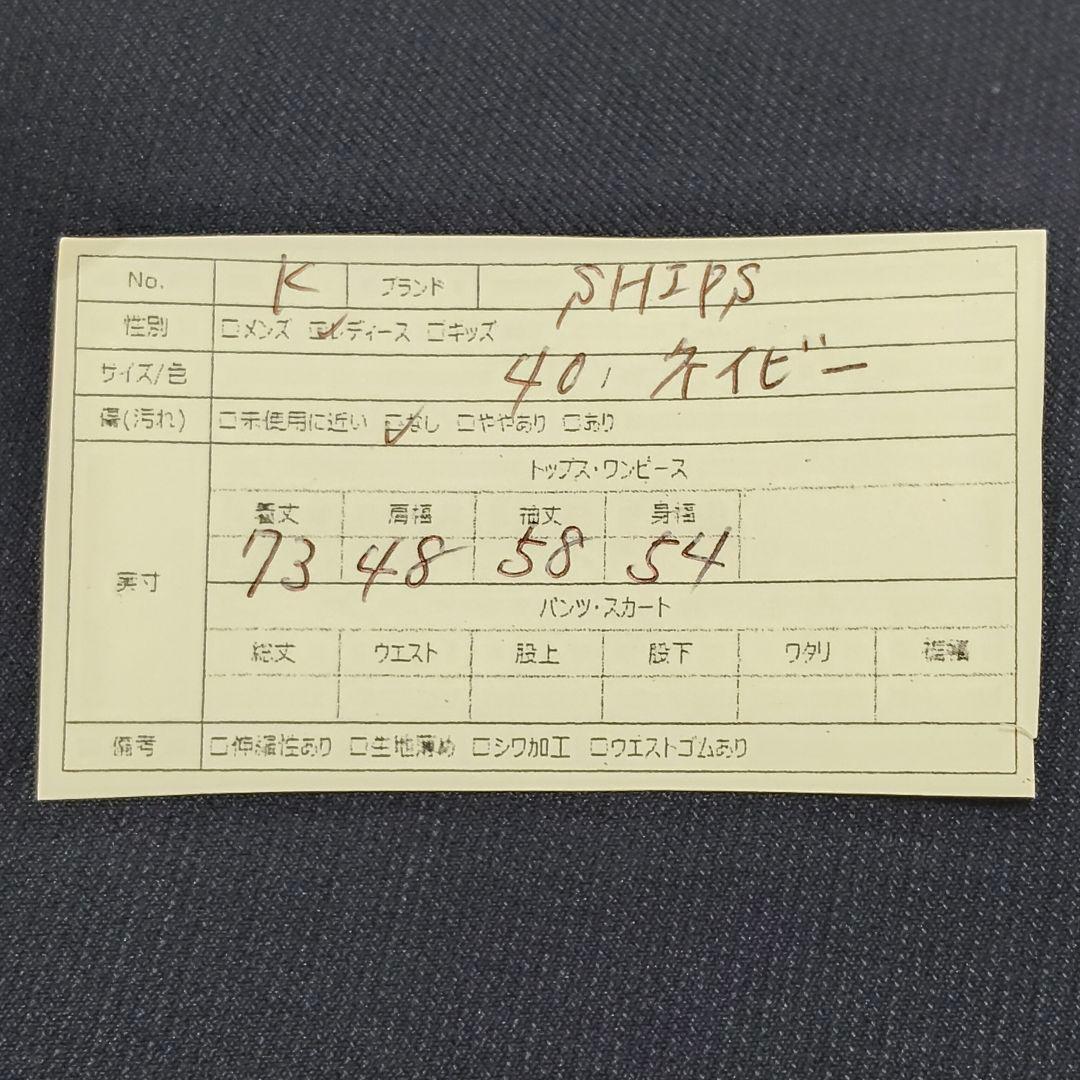 No. K ブランド SHIPS
性別 □メンズ ☑レディース □キッズ
サイズ/色 40, ネイビー
傷(汚れ) □未使用に近い ☑なし □ややあり □あり
トップス・ワンピース
着丈 肩幅 袖丈 身幅
実寸 73 48 58 54
パンツ・スカート
総丈 ウエスト 股上 股下 ワタリ 裾幅
備考 □伸縮性あり □生地薄め □シワ加工 □ウエストゴムあり